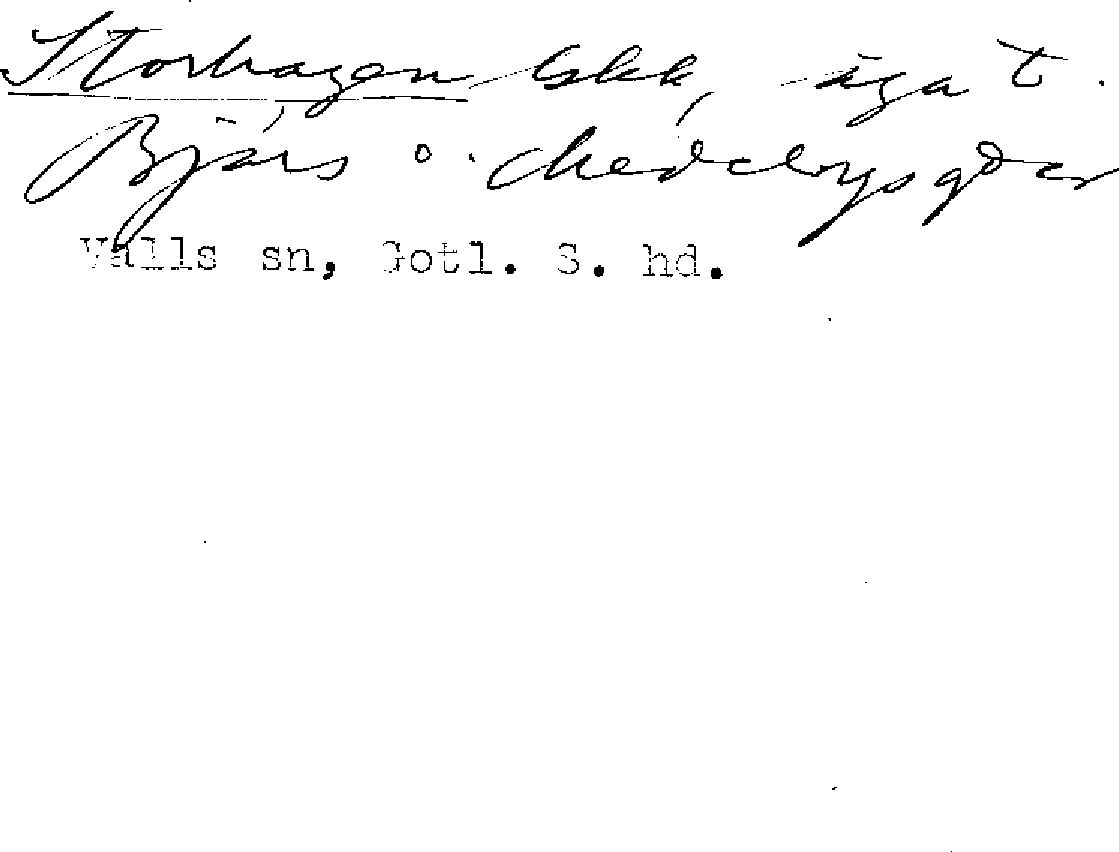 Storhagen bkk, äga t.
Bjärs o. Medebys gder
Valls sn, Gotl. S. hd.